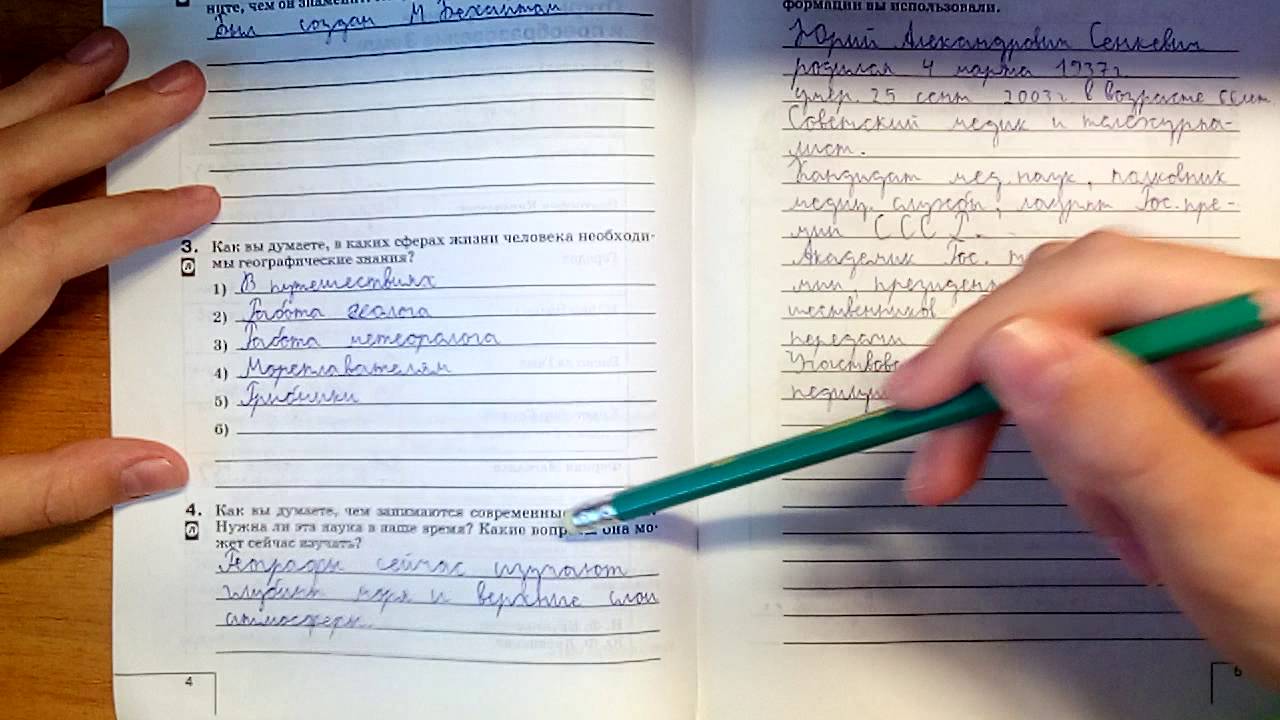 ните, чем он знаменит.
Был создан М Бехаимом
3. Как вы думаете, в каких сферах жизни человека необходи-
мы географические знания?
1) В путешествиях
2) Работа геолога
3) Работа метеоралога
4) Мореплавателям
5) Грибники
6)
4. Как вы думаете, чем занимаются современные
Нужна ли эта наука в наше время? Какие вопросы она мо-
жет сейчас изучать?
Географы сейчас изучают
глубины моря и верхние слои
атмосферы.
4
формации вы использовали.
Юрий Александрович Сенкевич
родился 4 марта 1937г.
умер. 25 сент 2003 г. в возрасте 66 лет
Советский медик и тележурна-
лист.
Кандидат мед. наук, полковник
медиц. службы, лауриат Гос. пре-
мии СССР.
Академик Гос.
мии, президент
шественников
передачи
Участвова